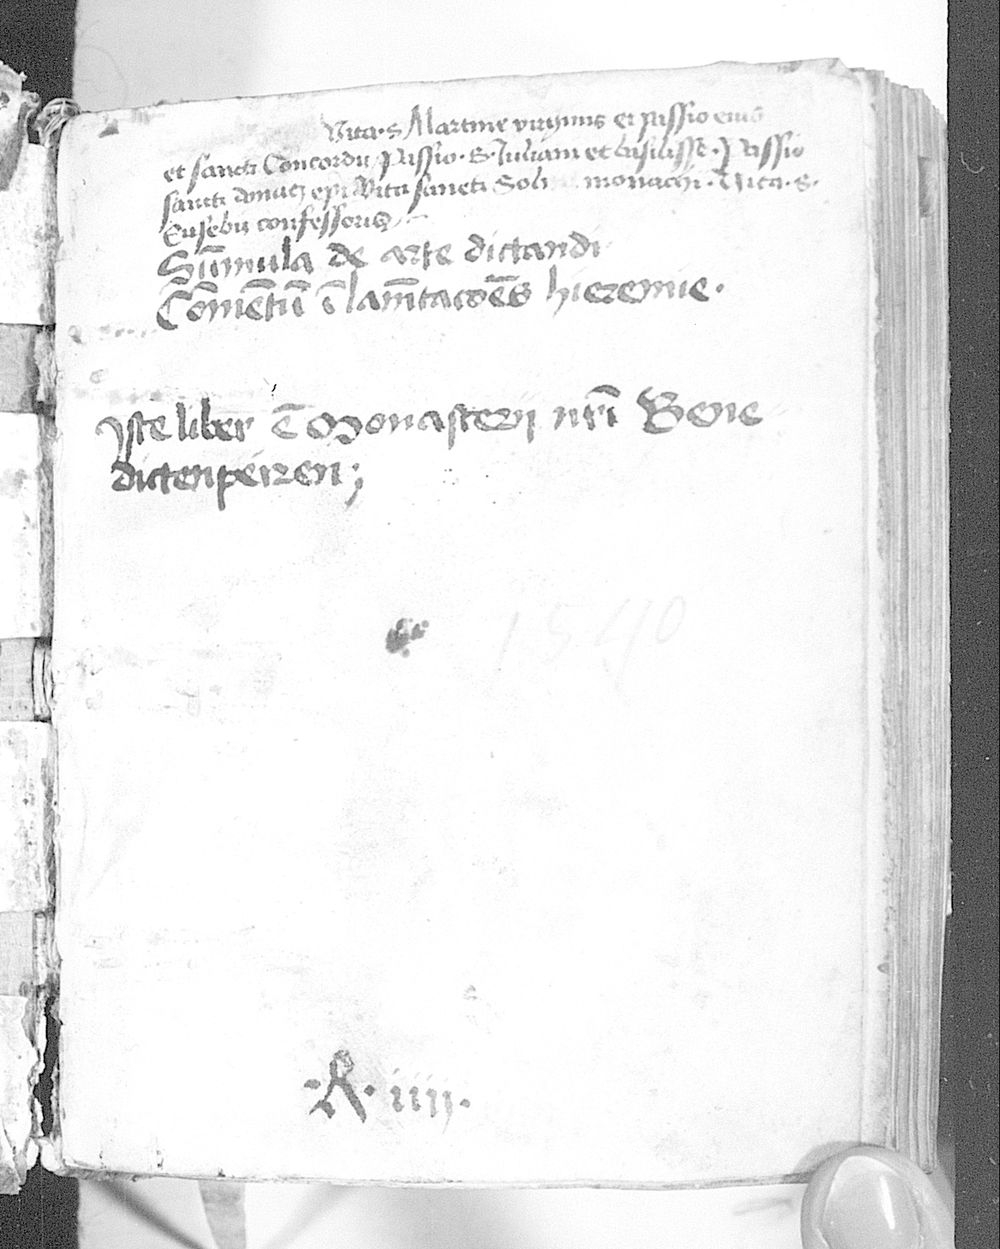 Vita · s Martine virginis et passio eius
et sancti Concordii Passio · S · Juliani et basilisse · Passio
sancti donati epi Vita sancti monachi · Vita · s ·
Eusebii confessoris
Sūmula de arte dictandi
Cōmētū ī lamētacōes hieremie ·
Iste liber ē Monasterij nrī Bene
dictenpeirren;
1540
· R · iiij ·